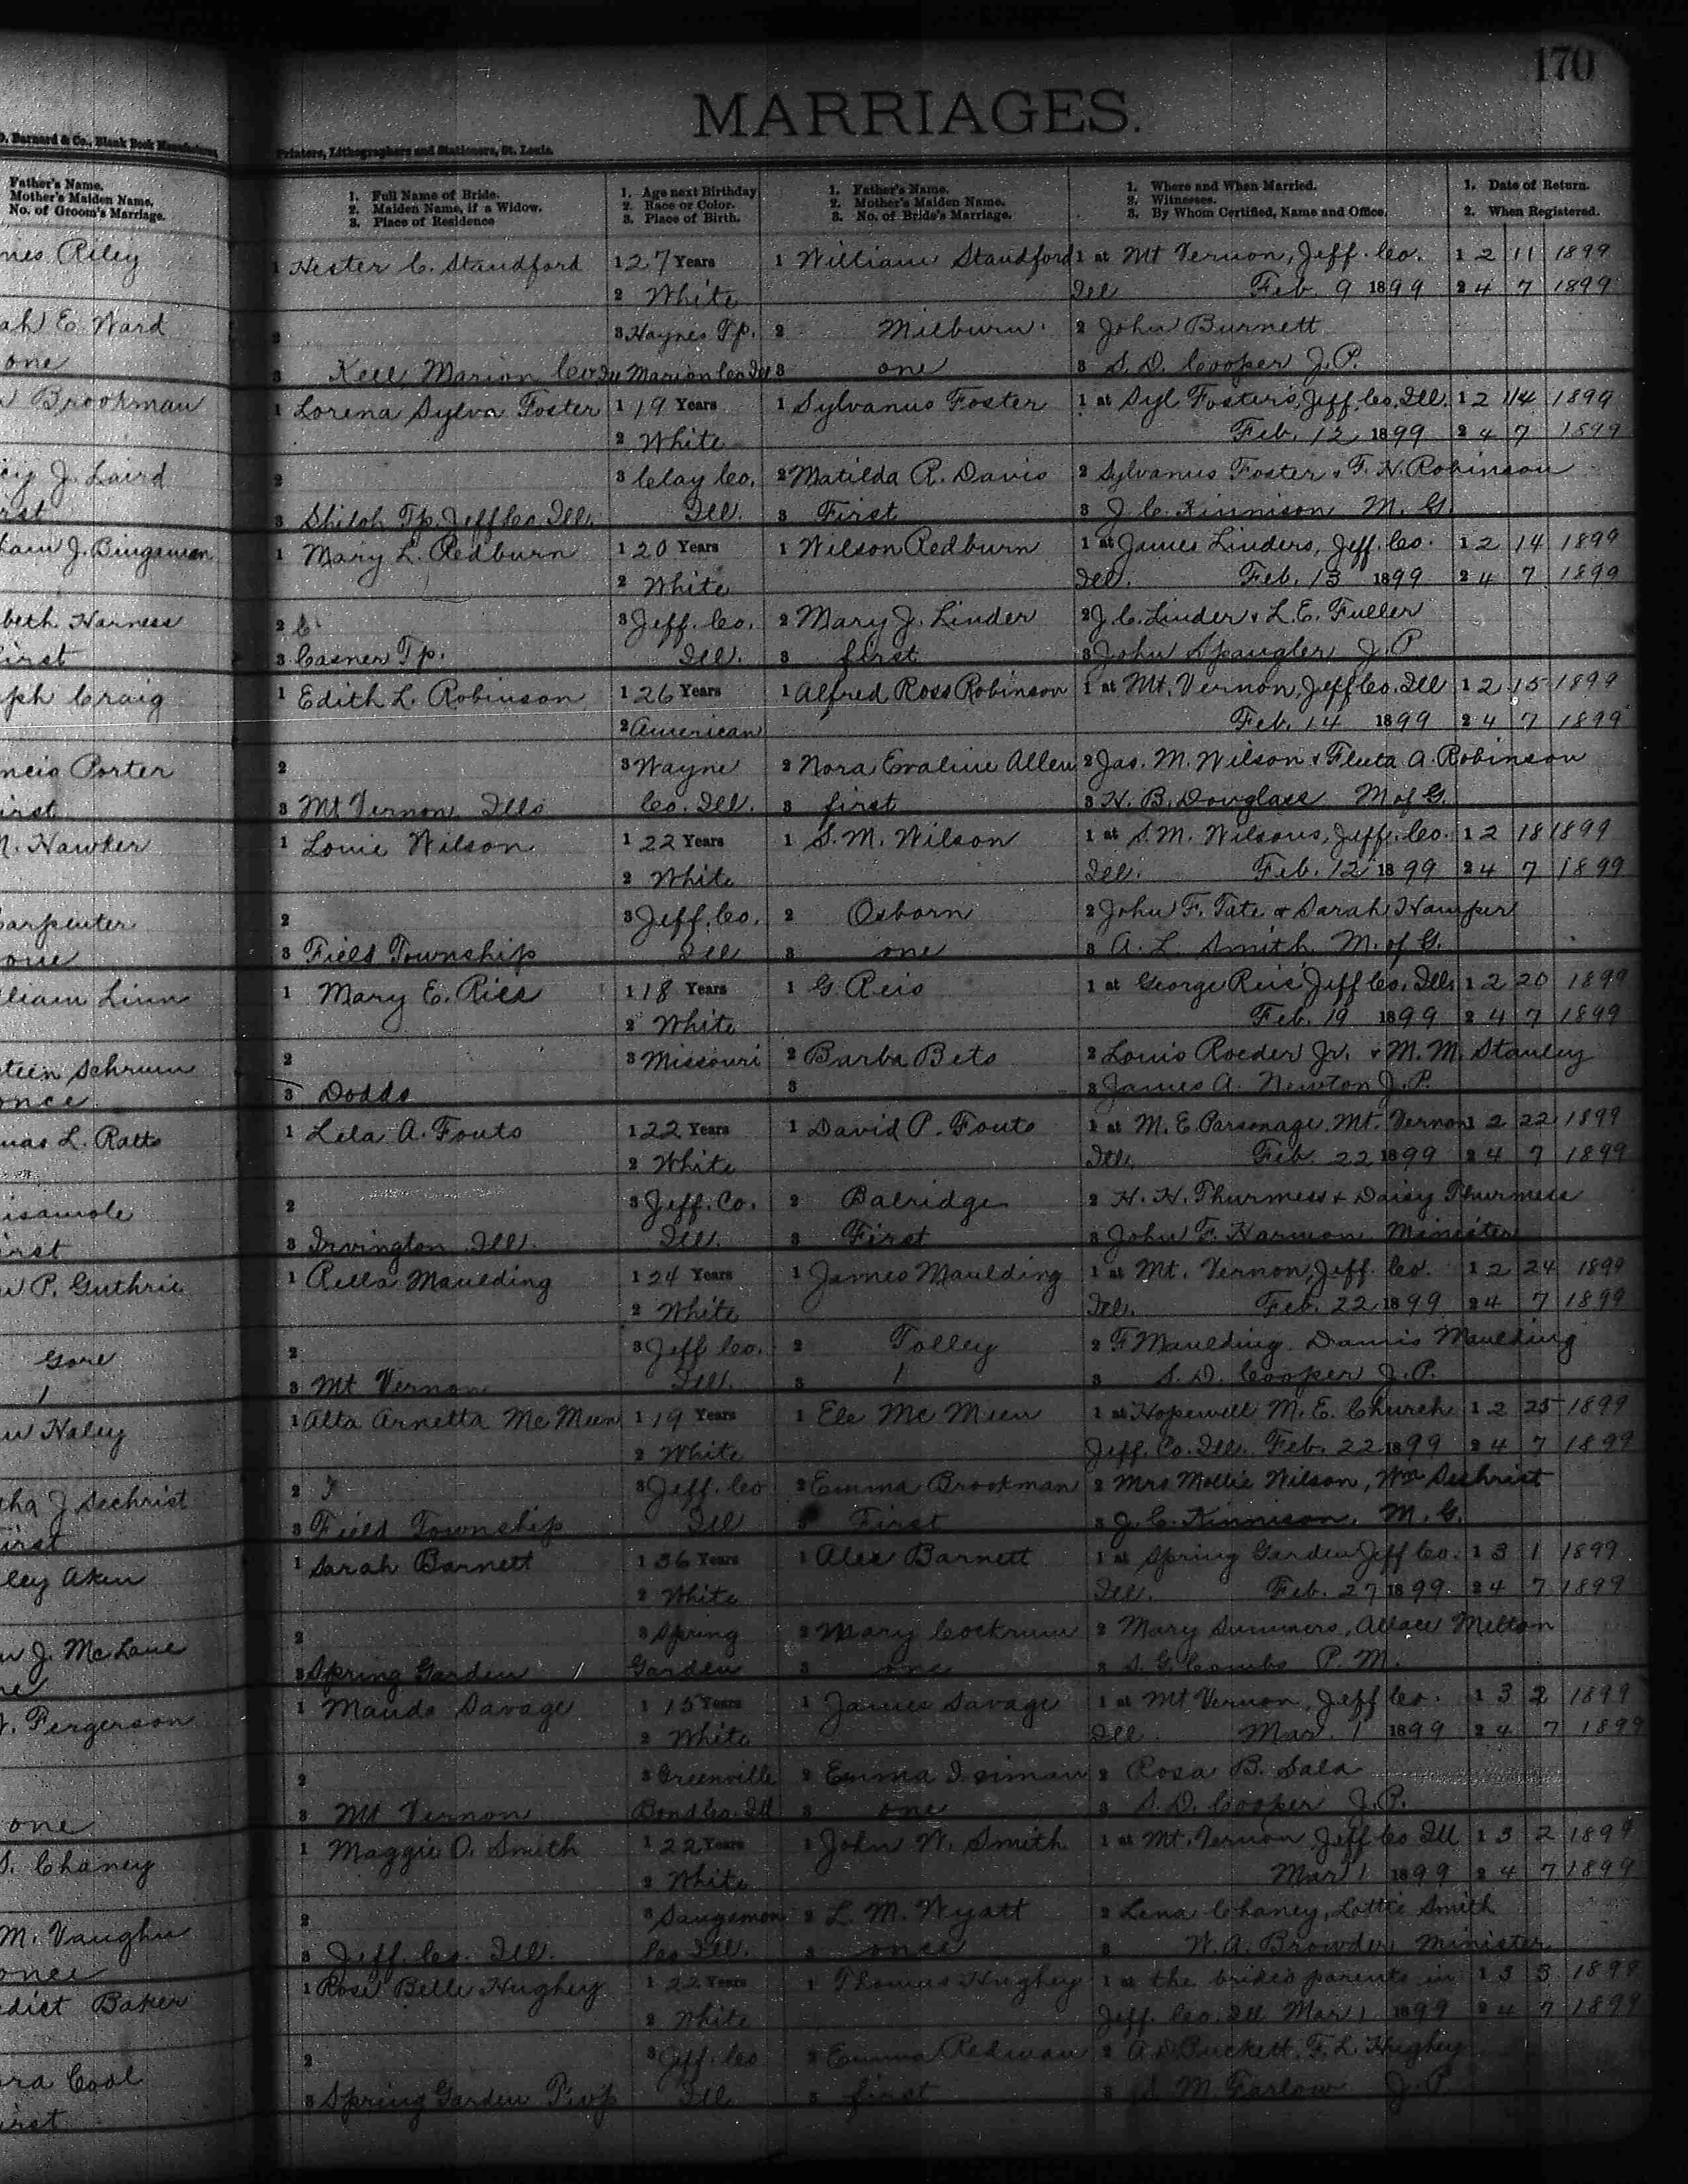 170
MARRIAGES.
D. Barnard & Co., Blank Book Manufacturers
Printers, Lithographers and Stationers, St. Louis.
Father's Name.
Mother's Maiden Name.
No. of Groom's Marriage.
1. Full Name of Bride.
2. Maiden Name, if a Widow.
3. Place of Residence
1. Age next Birthday
2. Race or Color.
3. Place of Birth.
1. Father's Name.
2. Mother's Maiden Name.
3. No. of Bride's Marriage.
1. Where and When Married.
2. Witnesses.
3. By Whom Certified, Name and Office.
1. Date of Return.
2. When Registered.
nes Riley 1 Hester C. Standford 1 27 Years 1 William Standford 1 at Mt Vernon, Jeff. Co. 1 2 11 1899
2 White Ill Feb. 9 1899 2 4 7 1899
ah E. Ward 2 3 Haynes Tp. 2 Milburn 2 John Burnett
one 3 Kell Marion Co Ill Marion Co Ill 3 one 3 S. D. Cooper J.P.
Brookman 1 Lorena Sylva Foster 1 19 Years 1 Sylvanus Foster 1 at Syl Foster's, Jeff. Co. Ill. 1 2 14 1899
2 White Feb. 12 1899 2 4 7 1899
cy J. Laird 2 3 Clay Co. 2 Matilda R. Davis 2 Sylvanus Foster & F. H. Robinson
rst 3 Shiloh Tp. Jeff Co. Ill. Ill. 3 First 3 J. C. Kinnison M. G.
ham J. Bingaman 1 Mary L. Redburn 1 20 Years 1 Wilson Redburn 1 at James Linders, Jeff. Co. 1 2 14 1899
2 White Ill. Feb. 13 1899 2 4 7 1899
beth Harness 2 C 3 Jeff. Co. 2 Mary J. Linder 2 J. C. Linder & L. E. Fuller
first 3 Casner Tp. Ill. 3 first 3 John Spangler J. P.
ph Craig 1 Edith L. Robinson 1 26 Years 1 Alfred Ross Robinson 1 at Mt. Vernon, Jeff Co. Ill 1 2 15 1899
2 American Feb. 14 1899 2 4 7 1899
ncis Porter 2 3 Wayne 2 Nora Evaline Allen 2 Jas. M. Wilson & Fleeta A. Robinson
irst 3 Mt Vernon Ills Co. Ill. 3 first 3 H. B. Douglass M of G.
M. Hawker 1 Louie Wilson 1 22 Years 1 S. M. Wilson 1 at S. M. Wilsons, Jeff. Co. 1 2 18 1899
2 White Ill. Feb. 12 1899 2 4 7 1899
Carpenter 2 3 Jeff. Co. 2 Osborn 2 John F. Tate & Sarah Hamper
one 3 Field Township Ill 3 one 3 A. L. Smith M. of G.
lliam Linn 1 Mary E. Ries 1 18 Years 1 G Reis 1 at George Reis' Jeff Co. Ills 1 2 20 1899
2 White Feb. 19 1899 2 4 7 1899
teen Schrum 2 3 Missouri 2 Barba Bets 2 Louis Roeder Jr. & M. M. Stanley
once 3 Dodds 3 3 James A. Newton J. P.
mas L. Ratts 1 Lela A. Fouts 1 22 Years 1 David P. Fouts 1 at M. E. Parsonage, Mt. Vernon 1 2 22 1899
2 White Ill. Feb. 22 1899 2 4 7 1899
isamole 2 3 Jeff. Co. 2 Balridge 2 H. H. Thurmess & Daisy Thurmess
irst 3 Irvington Ill. Ill. 3 First 3 John F. Harmon Minister
P. Guthrie 1 Rella Maulding 1 24 Years 1 James Maulding 1 at Mt. Vernon, Jeff Co. 1 2 24 1899
2 White Ill. Feb. 22 1899 2 4 7 1899
Gore 2 3 Jeff Co. 2 Tolley 2 F Maulding. Dannis Maulding
1 3 Mt Vernon Ill. 3 1 3 S. D. Cooper J. P.
Haley 1 Alta Arnetta McMeen 1 19 Years 1 Ele McMeen 1 at Hopewell M. E. Church 1 2 25 1899
2 White Jeff. Co. Ill. Feb. 22 1899 2 4 7 1899
tha J Sechrist 2 F 3 Jeff. Co 2 Emma Brookman 2 Mrs Mollie Wilson, Wm Sechrist
irst 3 Field Township Ill 3 First 3 J. C. Kinnison, M. G.
ley Aken 1 Sarah Barnett 1 36 Years 1 Alex Barnett 1 at Spring Garden Jeff Co. 1 3 1 1899
2 White Ill. Feb. 27 1899 2 4 7 1899
J. McLane 2 3 Spring 2 Mary Cockrum 2 Mary Summers, Milton
ne 3 Spring Garden Garden 3 one 3 S. G. Combs P. M.
Fergerson 1 Maude Savage 1 15 Years 1 James Savage 1 at Mt Vernon, Jeff Co. 1 3 2 1899
2 White Ill Mar. 1 1899 2 4 7 1899
2 3 Greenville 2 Emma 2 Rosa B. Sala
one 3 Mt Vernon Bond Co. Ill 3 one 3 S. D. Cooper J. P.
S. Chaney 1 Maggie O. Smith 1 22 Years 1 John W. Smith 1 at Mt. Vernon Jeff Co Ill 1 3 2 1899
2 White Mar 1 1899 2 4 7 1899
M. Vaughn 2 3 Sangamon 2 L. M. Wyatt 2 Lena Chaney, Lottie Smith
once 3 Jeff. Co. Ill. Co Ill. 3 once 3 W. A. Browder Minister
dict Baker 1 Rose Belle Hughey 1 22 Years 1 Thomas Hughey 1 at the bride's parents in 1 3 3 1899
2 White Jeff. Co. Ill Mar 1 1899 2 4 7 1899
ra Cool 2 3 Jeff. Co 2 Emma Redman 2 A. D. Puckett, F. L. Hughey
irst 3 Spring Garden Ill 3 first 3 S. M. Farlow J. P.